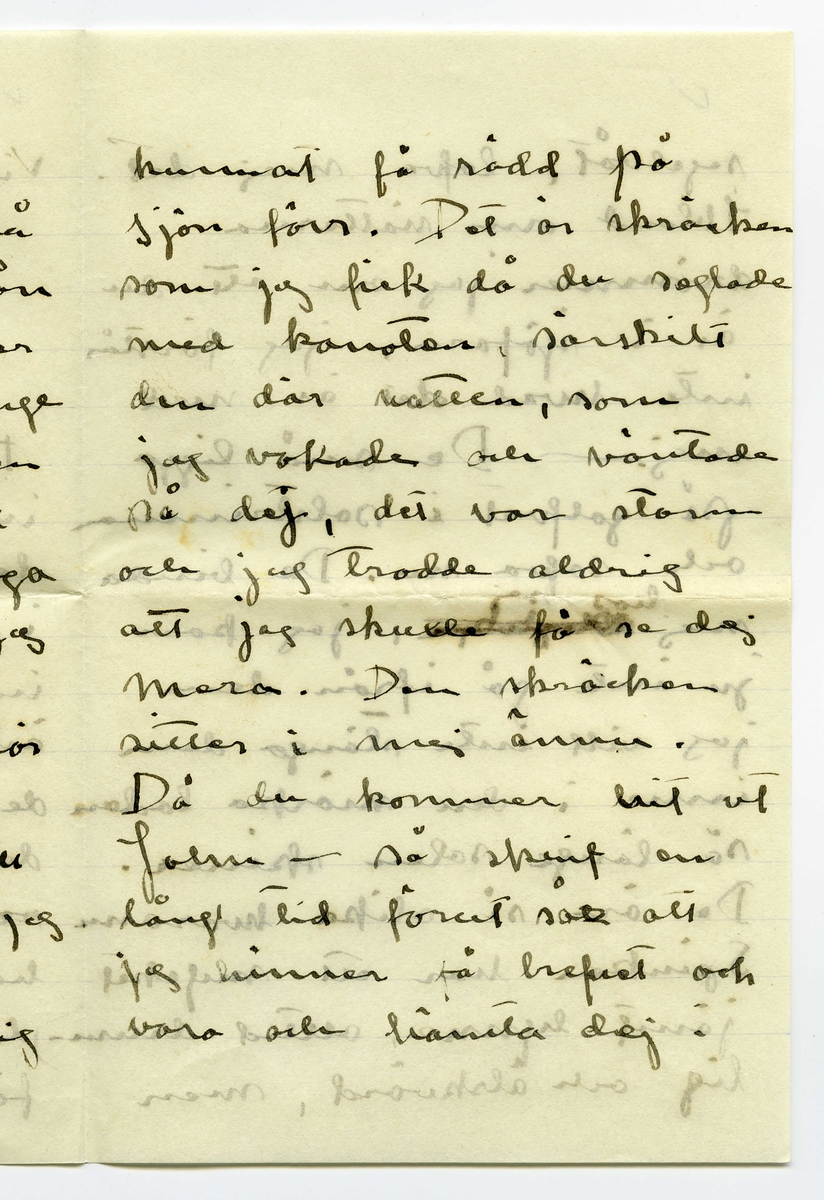 kunnat få rädd på
sjön förr. Det är skräcken
som jag fick då du seglade
med kanoten, särskilt
den där natten, som
jag vakade och väntade
på dej, det var storm
och jag trodde aldrig
att jag skulle få se dej
mera. Den skräcken
sitter i mej ännu.
Då du kommer hit ut
– så skrif en
långt tid förut så att
jag hinner få brefvet och
vara och hämta dej i